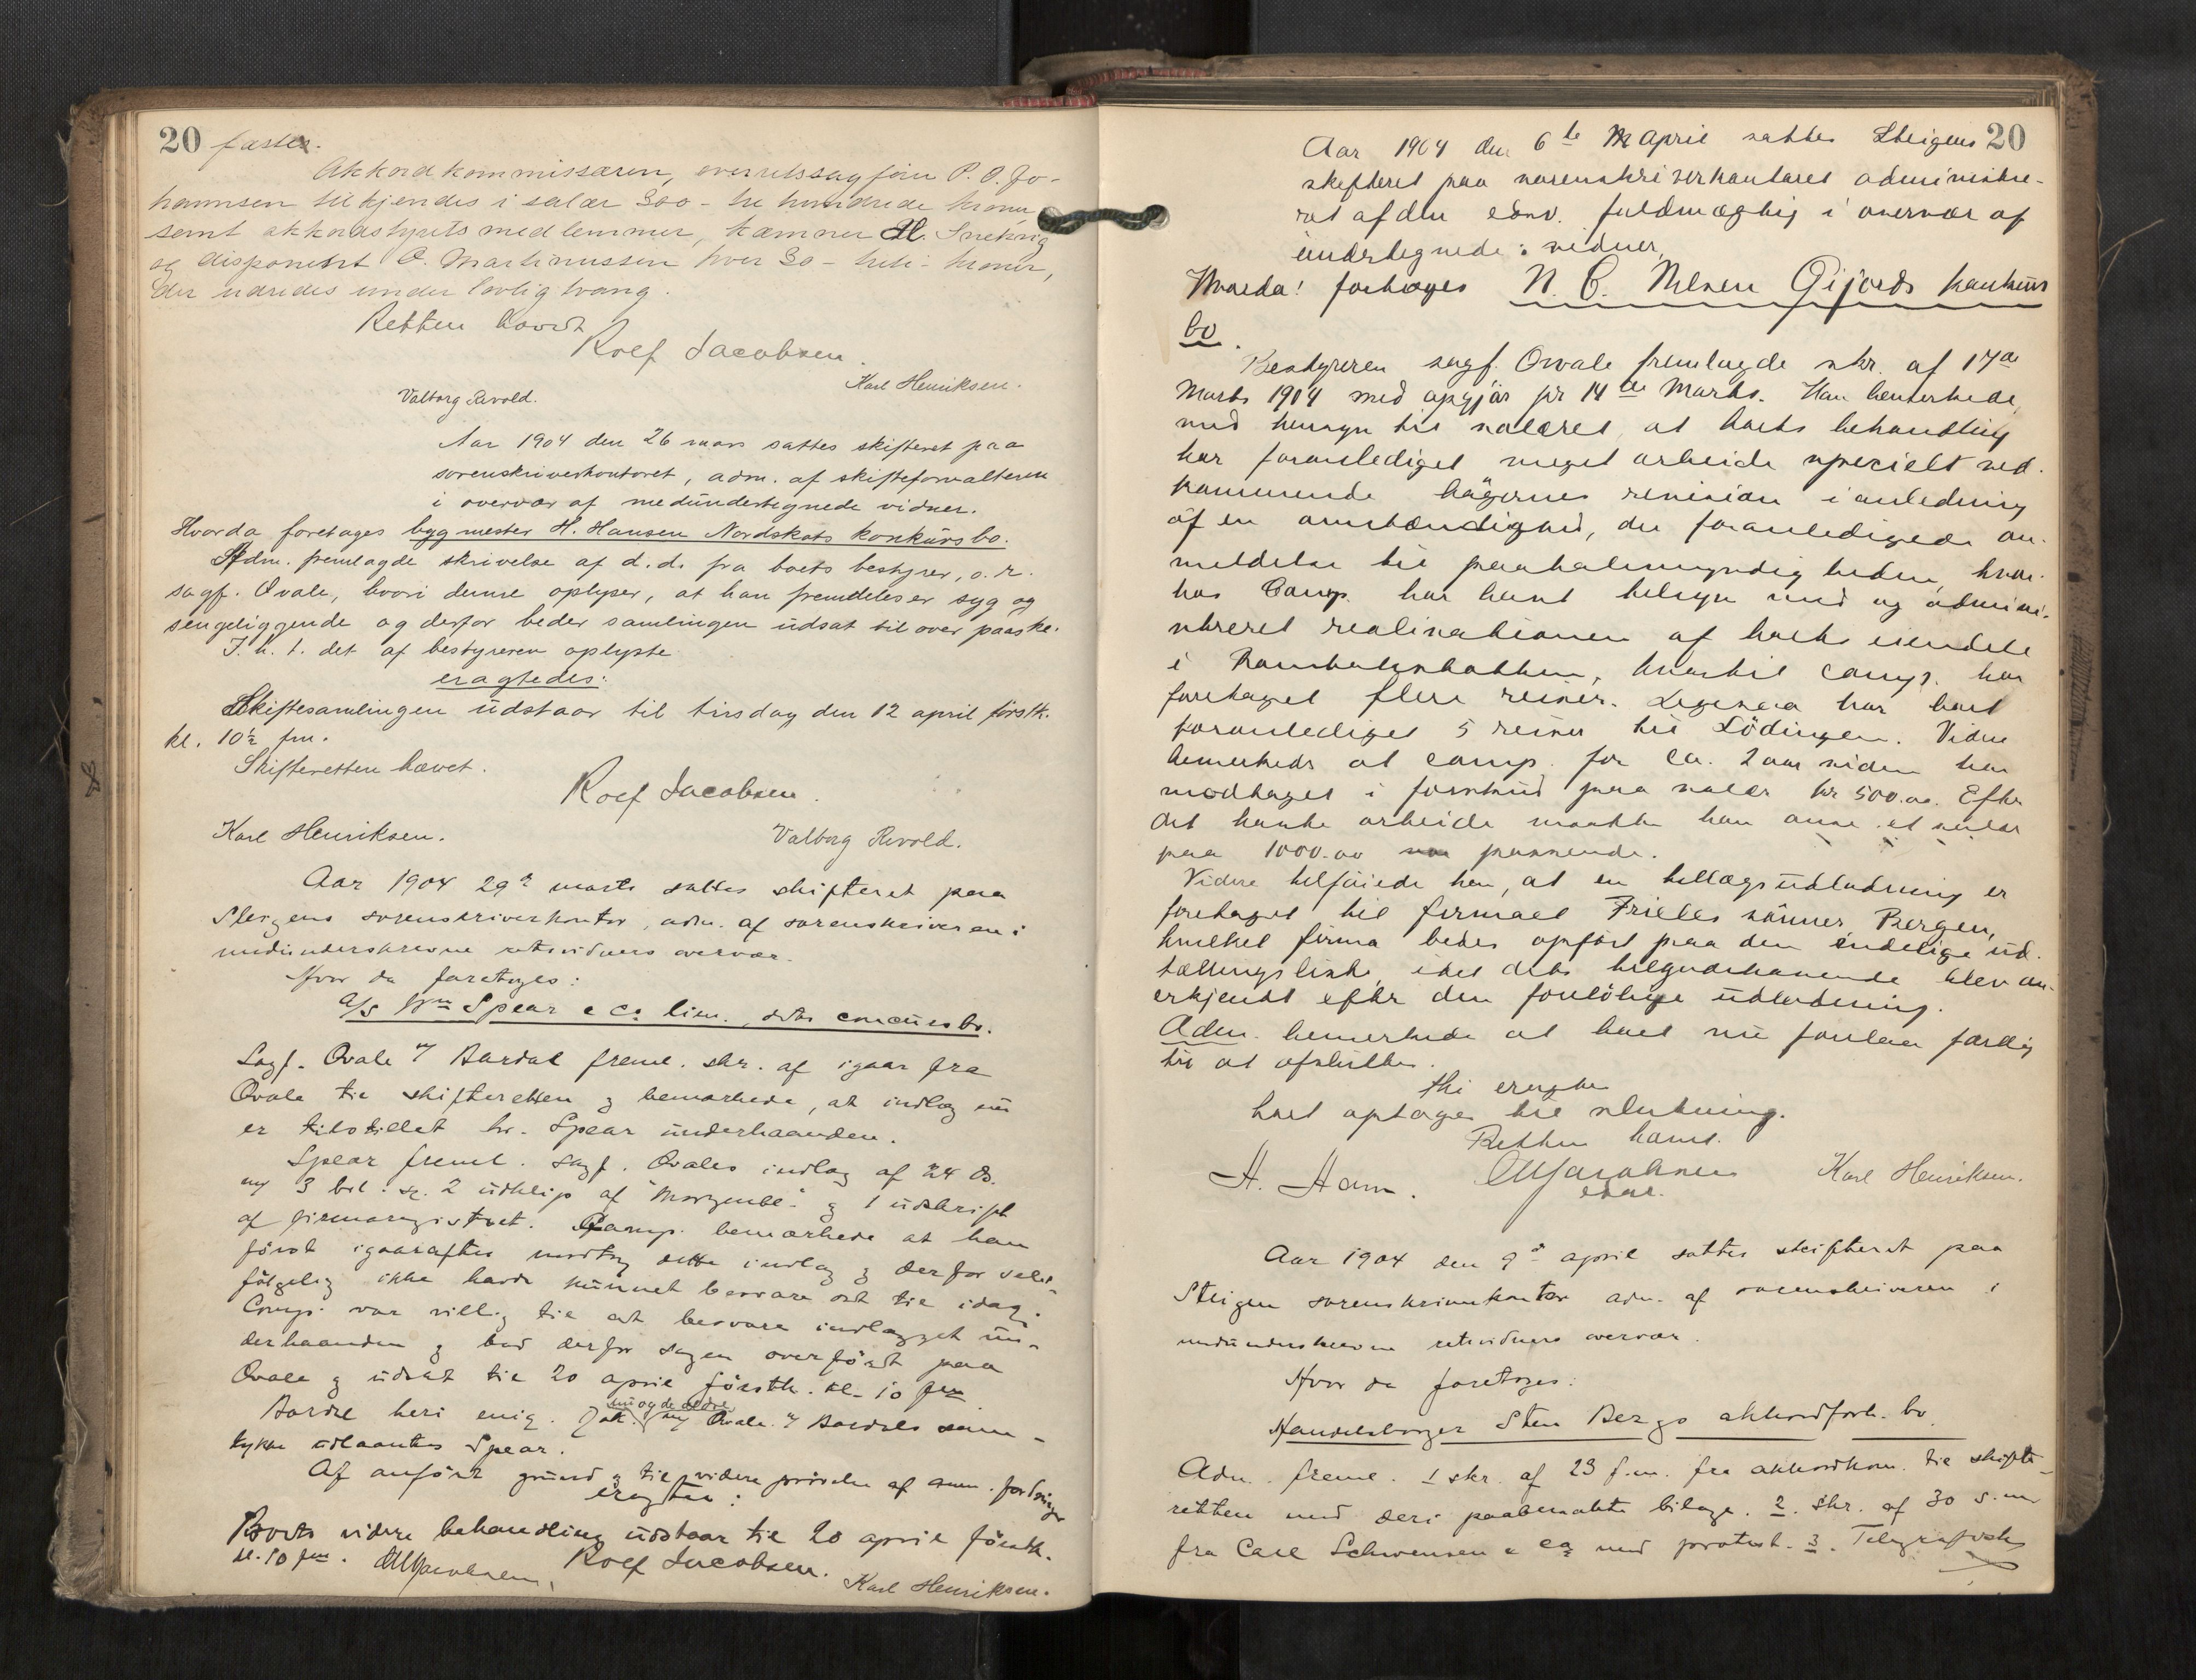 20 fastes.
Akkordkommissæren, overretssagfører P. O. Jo-
hannsen tilkjendes i salær 300 - tre hundrede kroner
samt akkordstyrets medlemmer, kæmner H.
og disponent O. Martinussen hver 30 - treti - kroner,
der udredes under lovlig tvang.
Retten hævet
Rolf Jacobsen.
Karl Henriksen.
Valborg Revold.
Aar 1904 den 26 mars sattes skifteret paa
sorenskriverkontoret, adm. af skifteforvalteren
i overvær af medundertegnede vidner.
Hvorda foretages bygmester H. Hansen Nordskots konkursbo.
Adm. fremlagde skrivelse af d.d. fra boets bestyrer, o.r.
sagf. Qvale, hvori denne oplyser, at han fremdeles er syg og
sengeliggende og derfor beder samlingen udsat til over paaske.
I. h. t. det af bestyreren oplyste
eragtedes:
Skiftesamlingen udstaar til tirsdag den 12 april førstk.
kl. 10½ fm.
Skifteretten hævet.
Rolf Jacobsen.
Karl Henriksen.
Valborg Revold.
Aar 1904 29de marts sattes skifteret paa
Steigens sorenskriverkontor, adm. af sorenskriveren i
medunderskrevne retsvidners overvær.
Hvor da foretoges:
A/S Wm Spear & Co lim., dets concursbo.
Sagf. Qvale v/ Bardal freml. skr. af igaar fra
Qvale til skifteretten g bemærkede, at indlæg nu
er tilstillet hr. Spear underhaanden.
Spear freml. sagf. Qvales indlæg af 24 ds.
m/ 3 bil: sc. 2 udklip af "Morgenbl." g 1 udskrift
af firmaregistret. Comp. bemærkede at han
først igaaraftes modtog dette indlæg g derfor selv-
følgelig ikke havde kunnet besvare det til idag.
Comp. var villig til at besvare indlægget un-
derhaanden g bad derfor sagen overført paa
Qvale g udsat til 20 april førstk. kl. 10 fm
Bardal heri enig. m/ Qvale v/ Bardals sam-
tykke udlaantes Spear.
Af anført grund g til videre prøvelse af anm. fordringer
eragtes:
Boets videre behandling udstaar til 20 april førstk.
kl. 10 fm. Rolf Jacobsen.
Karl Henriksen.
20
Aar 1904 den 6te April sattes Steigens
skifteret paa sorenskriverkontoret administre-
ret af den edsv. fuldmægtig i overvær af
undertegnede: vidner,
Hvorda! foretoges N. C. Nilsen Gijords konkurs
bo.
Bestyreren sagf. Qvale fremlagde skr. af 17de
Marts 1904 med opgjør pr 14de Marts. Han bemerkede
med hensyn til salæret, at boets behandling
har foranlediget meget arbeide specielt ved-
kommende bøgernes revision i anledning
af en omstændighed, der foranledigede an-
meldelse til paatalemyndigheden, hvor-
hos Comp. har havt tilsyn med og admini-
streret realisationen af boets eiendele
i, hvortil comp. har
foretaget flere reiser. Ligesaa har boet
foranlediget 5 reiser til Lödingen. Videre
bemerkedes at comp. for ca. 2 aar siden har
modtaget i forskud paa salær kr 500.00. Efter
det havte arbeide maatte han anse et salær
paa 1000.00 passende.
Videre tilføiede han, at en tillægsudlodning er
foretaget til firmaet Frieles sønner, Bergen,
hvilket firma bedes opført paa den endelige ud-
lodningsliste, idet dets tilgodehavende blev an-
erkjendt efter den foreløbige udlodning.
Adm. bemerkede at boet nu forelaa færdig
til at afsluttes.
thi eragtes
boet optages til slutning.
Retten hævet.
H. Ham.
edsv.
Karl Henriksen.
Aar 1904 den 9de april sattes skifteret paa
Steigen sorenskriverkontor adm. af sorenskriveren i
medunderskrevne retsvidners overvær.
Hvor da foretoges:
Handelsborger Sten Bergs akkordforh. bo
Adm. freml. 1 skr. af 23 f.m. fra akkordkom. til skifte-
retten med deri paaberaabte bilage. 2. Skr. af 30 s.m
fra Carl Schwensen & Co med protest. 3. Telegrafvek